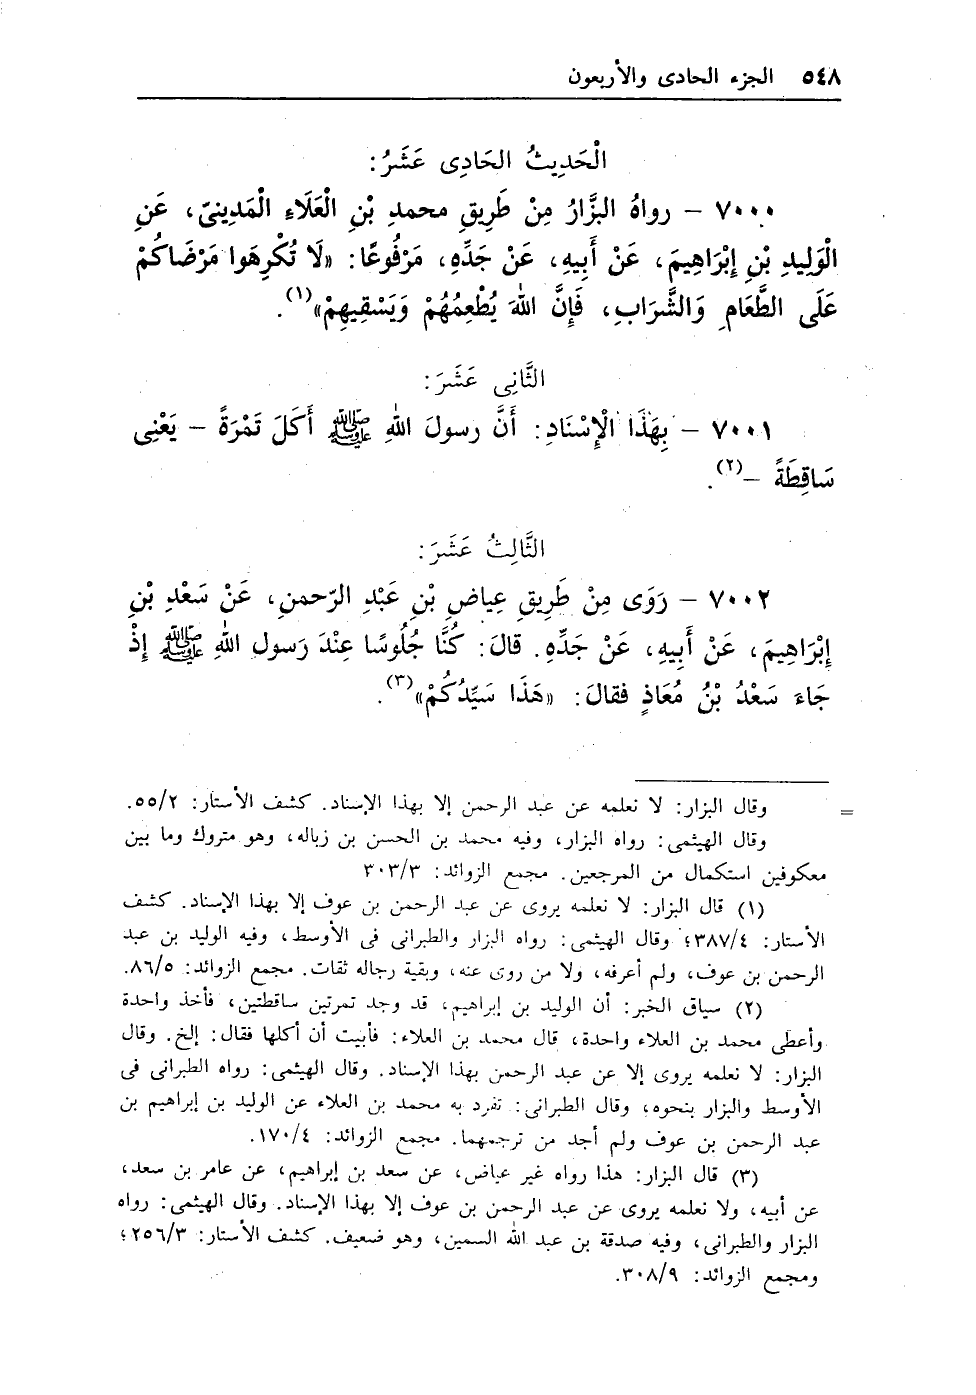 ٥٤٨ الجزء الحادى والأربعون
الْحَدِيثُ الحَادِى عَشَرُ:
٧٠٠٠ – رواهُ البزَّارُ مِنْ طَرِيقِ محمدِ بْنِ الْعَلَاءِ الْمَدِينىّ، عَنِ
الْوَلِيدِ بْنِ إِبْرَاهِيمَ، عَنْ أَبِيهِ، عَنْ جَدِّهِ، مَرْفُوعًا: «لَا تُكْرِهَوا مَرْضَاكُمْ
عَلَى الطَّعَامِ وَالشَّرَابِ، فَإِنَّ اللهَ يُطْعِمُهُمْ وَيَسْقِيهِمْ»(١).
الثَّانِى عَشَرَ:
٧٠٠١ – بِهَذَا الْإِسْنَادِ: أَنَّ رسولَ اللهِ ﷺ أَكَلَ تَمْرَةً – يَعْنِى
سَاقِطَةً –(٢).
الثَّالِثُ عَشَرَ:
٧٠٠٢ – رَوَى مِنْ طَرِيقِ عِياضِ بْنِ عَبْدِ الرّحمنِ، عَنْ سَعْدِ بْنِ
إِبْرَاهِيمَ، عَنْ أَبيهِ، عَنْ جَدِّهِ. قالَ: كُنَّا جُلُوسًا عِنْدَ رَسولِ اللهِ ﷺ إِذْ
جَاءَ سَعْدُ بْنُ مُعَاذٍ فقالَ: «هَذَا سَيِّدُكُمْ»(٣).
= وقال البزار: لا نعلمه عن عبد الرحمن إلا بهذا الإسناد. كشف الأستار: ٥٥/٢.
وقال الهيثمى: رواه البزار، وفيه محمد بن الحسن بن زباله، وهو متروك وما بين
معكوفين استكمال من المرجعين. مجمع الزوائد: ٣٠٣/٣
(١) قال البزار: لا نعلمه يروى عن عبد الرحمن بن عوف إلا بهذا الإسناد. كشف
الأستار: ٣٨٧/٤؛ وقال الهيثمى: رواه البزار والطبرانى فى الأوسط، وفيه الوليد بن عبد
الرحمن بن عوف، ولم أعرفه، ولا من روى عنه، وبقية رجاله ثقات. مجمع الزوائد: ٨٦/٥.
(٢) سياق الخبر: أن الوليد بن إبراهيم، قد وجد تمرتين ساقطتين، فأخذ واحدة
وأعطى محمد بن العلاء واحدة، قال محمد بن العلاء: فأبيت أن أكلها فقال: إلخ. وقال
البزار: لا نعلمه يروى إلا عن عبد الرحمن بهذا الإسناد. وقال الهيثمى: رواه الطبرانى فى
الأوسط والبزار بنحوه، وقال الطبرانى: تفرد به محمد بن العلاء عن الوليد بن إبراهيم بن
عبد الرحمن بن عوف ولم أجد من ترجمهما. مجمع الزوائد: ١٧٠/٤.
(٣) قال البزار: هذا رواه غير عياض، عن سعد بن إبراهيم، عن عامر بن سعد،
عن أبيه، ولا نعلمه يروى عن عبد الرحمن بن عوف إلا بهذا الإسناد. وقال الهيثمى: رواه
البزار والطبرانى، وفيه صدقة بن عبد الله السمين، وهو ضعيف. كشف الأستار: ٢٥٦/٣؛
ومجمع الزوائد: ٣٠٨/٩.